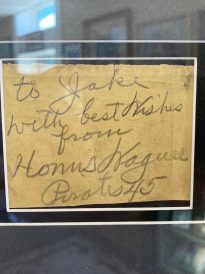 to Jake
with best Wishes
from
Honus Wagner
Pirates 45